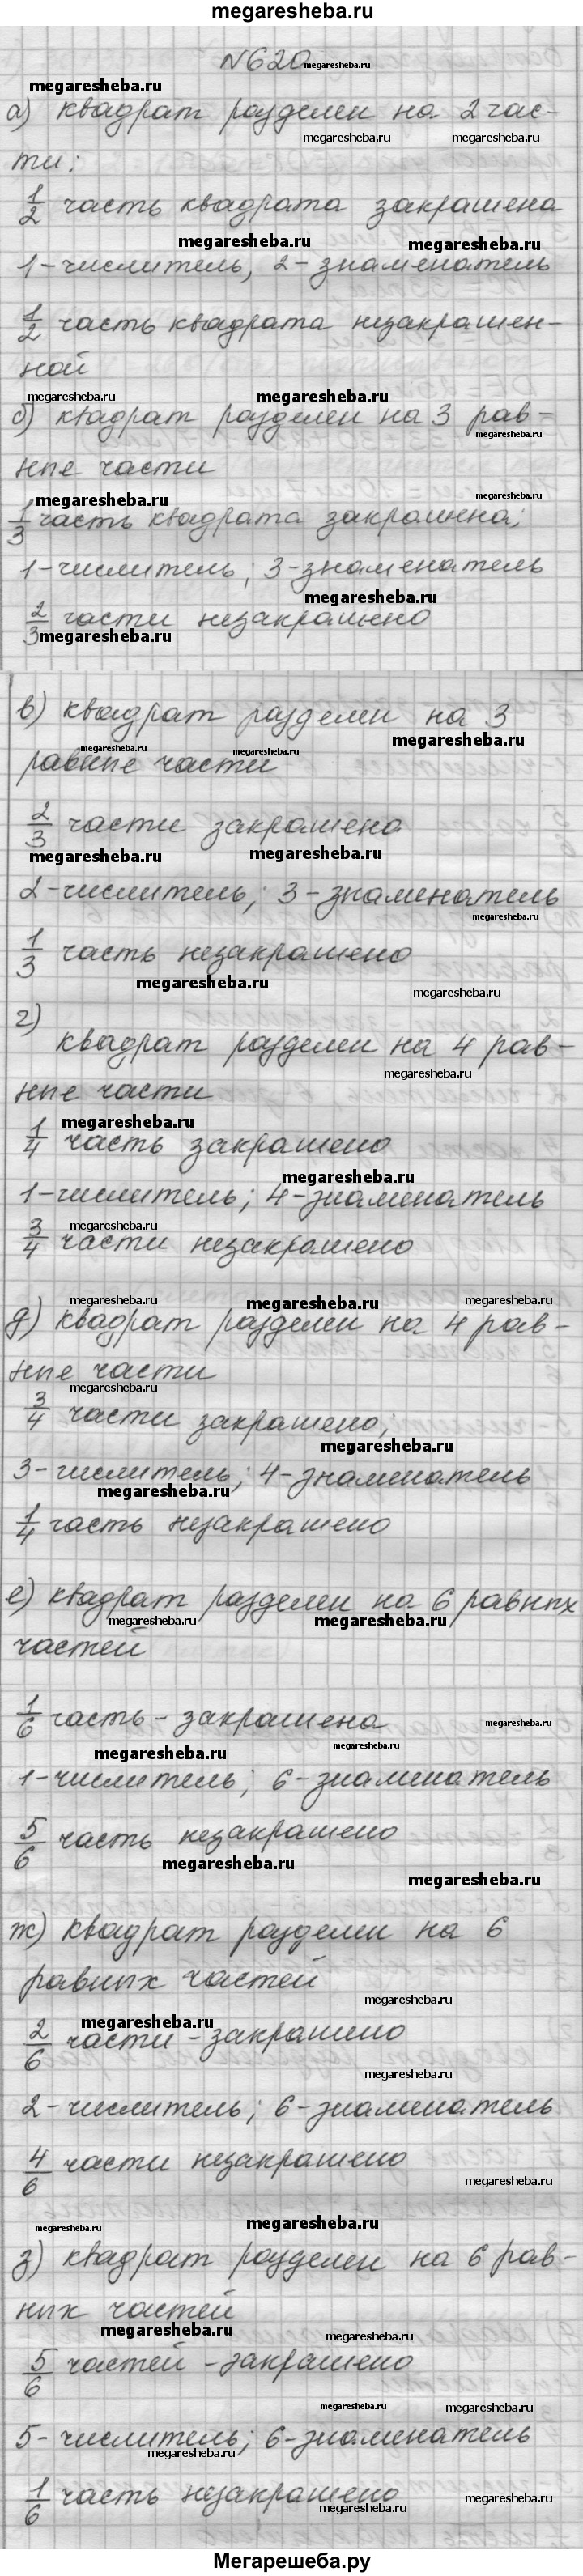 megaresheba.ru
№620
а) квадрат разделен на 2 час-
ти:
1/2 часть квадрата закрашена
1-числитель, 2-знаменатель
1/2 часть квадрата незакрашен-
ной
б) квадрат разделен на 3 рав-
ные части
1/3 часть квадрата закрашена;
1-числитель; 3-знаменатель
2/3 части незакрашено
в) квадрат разделен на 3
равные части
2/3 части закрашено
2-числитель; 3-знаменатель
1/3 часть незакрашено
г)
квадрат разделен на 4 рав-
ные части
1/4 часть закрашено
1-числитель; 4-знаменатель
3/4 части незакрашено
д) квадрат разделен на 4 рав-
ные части
3/4 части закрашено;
3-числитель; 4-знаменатель
1/4 часть незакрашено
е) квадрат разделен на 6 равных
частей
1/6 часть - закрашена
1-числитель; 6-знаменатель
5/6 часть незакрашено
ж) квадрат разделен на 6
равных частей
2/6 части - закрашено
2-числитель; 6-знаменатель
4/6 части незакрашено
з) квадрат разделен на 6 рав-
ных частей
5/6 частей - закрашено
5-числитель; 6-знаменатель
1/6 часть незакрашено
Мегарешеба.ру